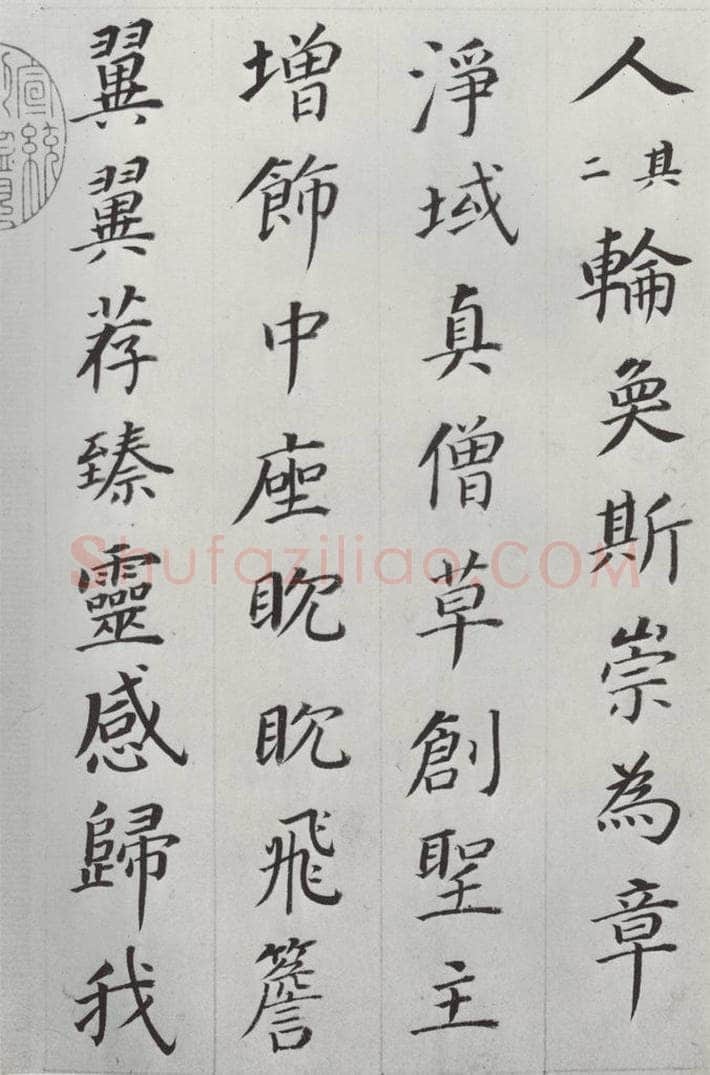 人其二輪奐斯崇為章
淨域真僧草創聖主
增飾中座眈眈飛簷
翼翼荐臻靈感歸我
Shufaziliao.COM